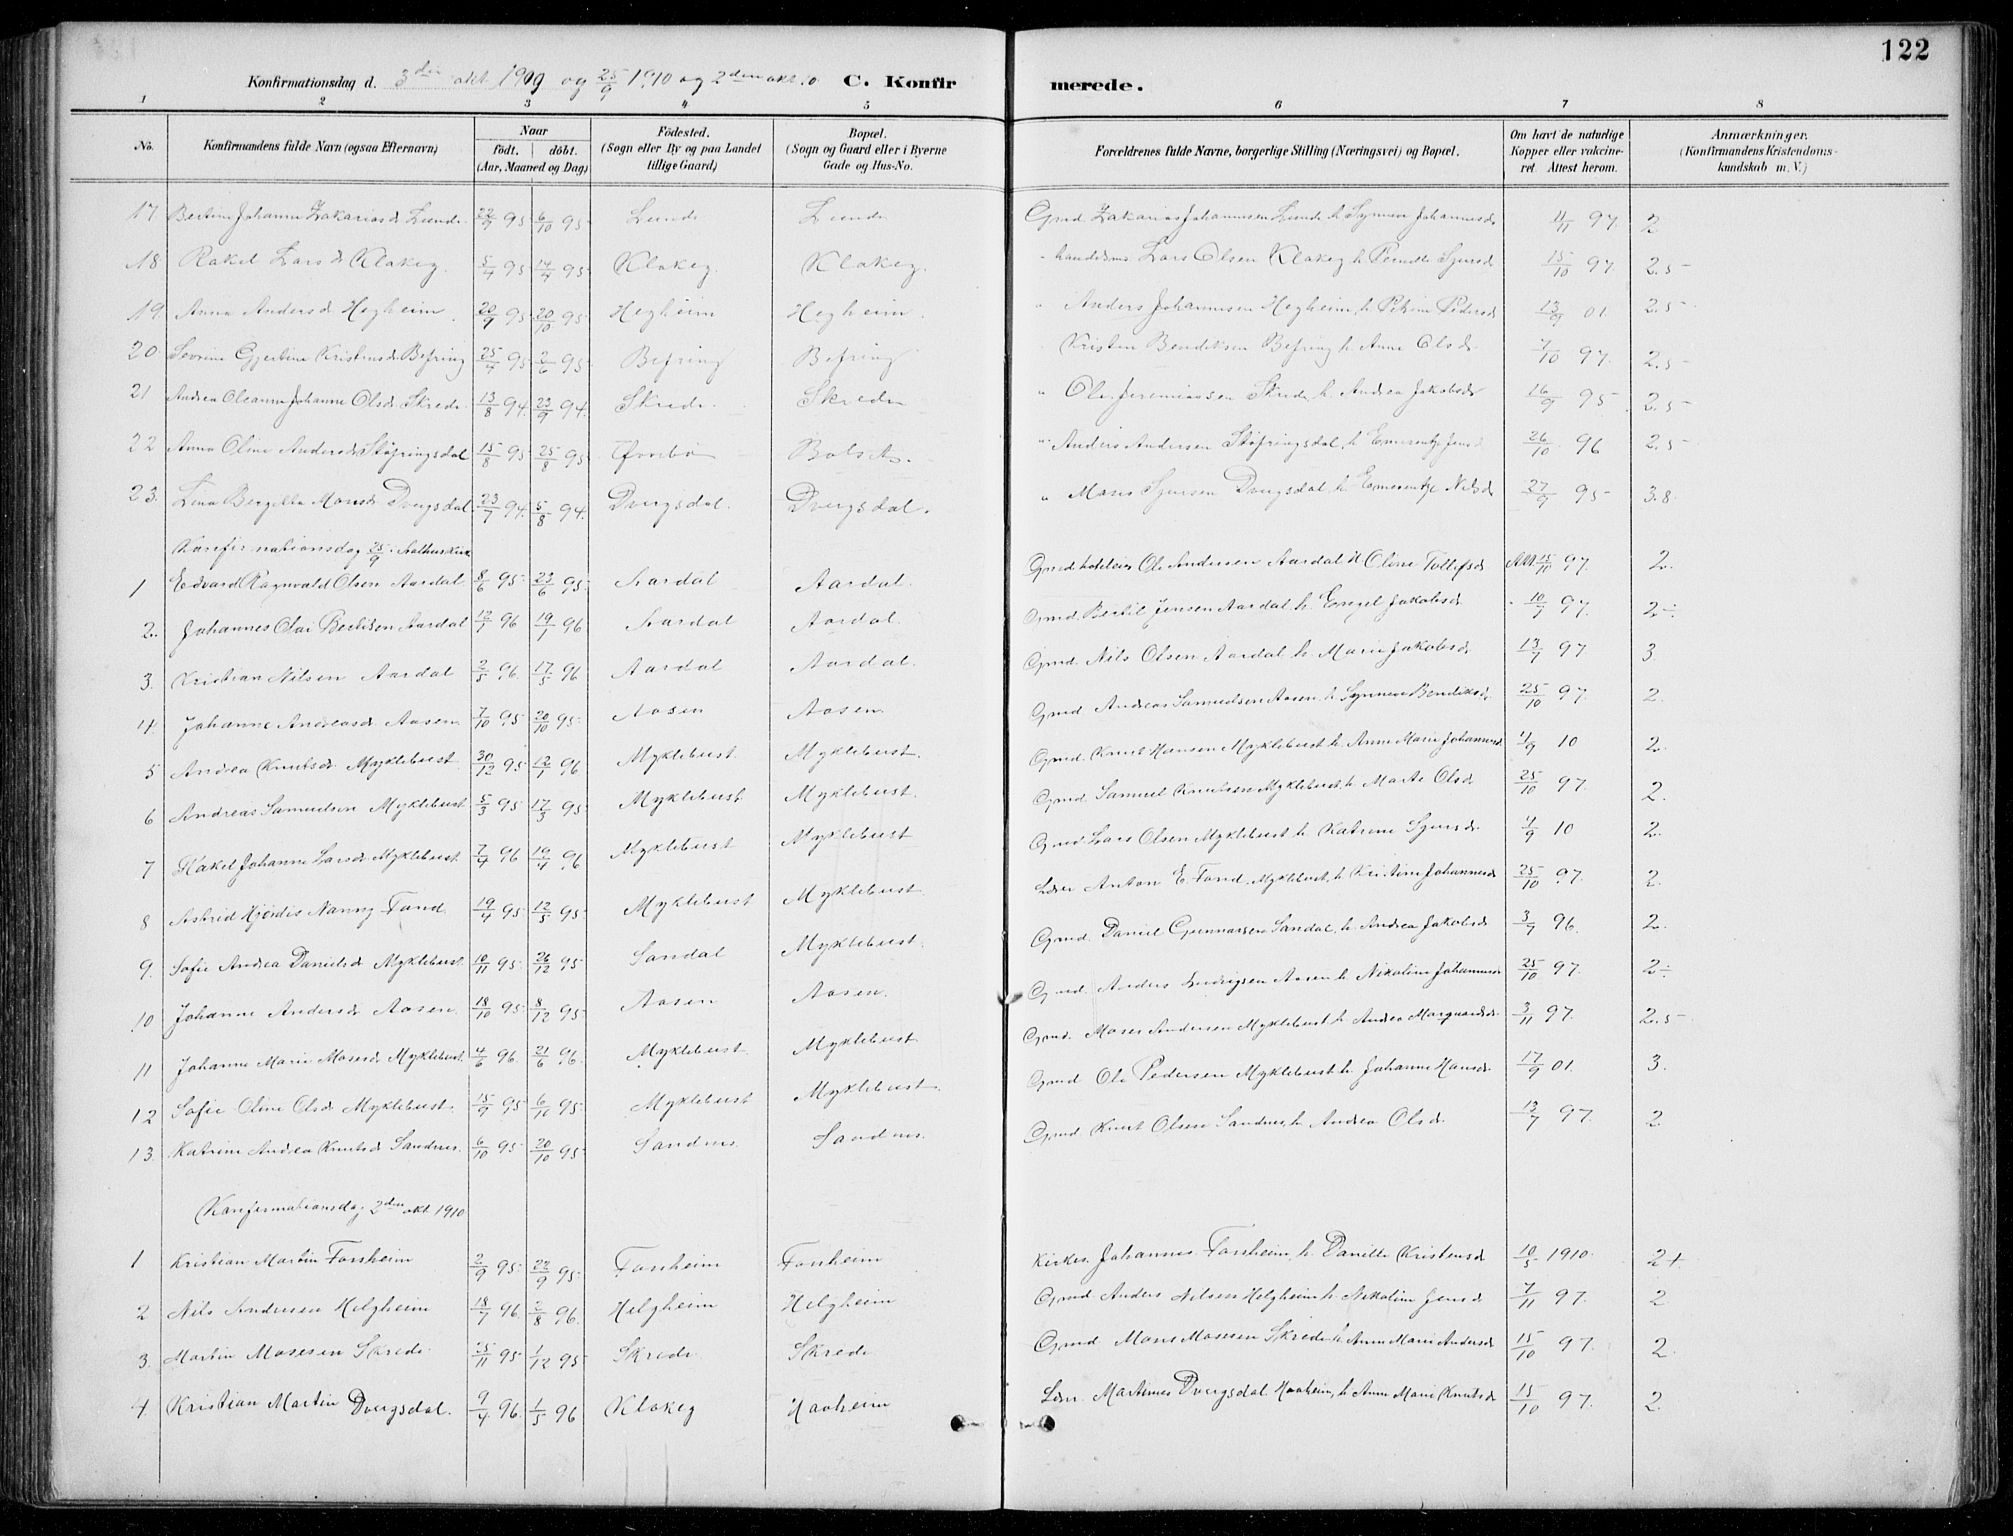 122
Konfirmationsdag d. 3die okt 1909 og 25/9 1910 og 2den okt. C. Konfirmerede.
1 2 3 4 5 6 7 8
No. Konfirmandens fulde Navn (ogsaa Efternavn) Naar födt. döbt. (Aar, Maaned og Dag) Födested. (Sogn eller By og paa Landet tillige Gaard) Bopæl. (Sogn og Gaard eller i Byerne Gade og Hus-No. Forældrenes fulde Navne, borgerlige Stilling (Næringsvei) og Bopæl. Om havt de naturlige Kopper eller vakcineret Attest herom. Anmærkninger. (Konfirmandens Kristendomskundskab m. V.)
17 Bertine Johanne Zakariasd Lunde 22/9 95 6/10 95 Lunde Lunde Gmd Zakarias Johannesen Lunde h. Synneve Johannesd 11/11 97. 2
18 Rakel Larsd Klakeg. 5/4 95 14/4 95 Klakeg. Klakeg. Lars Olsen Klakeg h. Pernille Sjursd 15/10 97 2.5
19 Anna Andersd Hegheim 20/9 95 20/10 95 Hegheim Hegheim " Anders Johannesen Hegheim h. Pedersd 13/9 01 2.5
20 Sevrine Gjertine Kristensd Befring 25/4 95 2/6 95 Befring Befring Kristen Bendiksen Befring h. Anne Olsd 7/10 97. 2.5
21 Andrea Oleanna Johanne Olsd Skrede. 13/8 94. 23/9 94. Skrede. Skrede " Ole Jeremiassen Skrede h. Andrea Jakobsd 16/9 95 2.5
22 Anna Oline Andersd Støfringsdal 15/8 95 25/8 95 " Anders Andersen Støfringsdal, h. Emerentze Jensd 26/10 96 2.5
23. Lina Bergitta Monsd Dvergsdal 23/7 94. 5/8 94. Dvergsdal. Dvergsdal. " Mons Sjursen Dvergsdal h. Emerentze Nilsd 27/9 95 3.8.
Konfirmationsdag 25/9
1 Edvard Ragnvald Olsen Aardal 8/6 95 23/6 95 Aardal Aardal. Gmd Ole Andersen Aardal h Oline Tollefsd 15/10 97. 2.
2. Johannes Olai Bertilsen Aardal 12/1 96 19/1 96 Aardal Aardal. Gmd. Bertil Jensen Aardal h. Engel Jakobsd 10/7 97. 2÷
3. Kristian Nilsen Aardal 2/5 96. 17/5 96 Aardal Aardal. Gmd. Nils Olsen Aardal h. Marie Jakobsd. 13/7 97 3.
4. Johanne Andreasd Aasen 7/10 95 20/10 95 Aasen Aasen Gmd Andreas Samuelsen Aasen h. Synneve Bendiksd 25/10 97 2.
5 Andrea Knutsd Myklebust 30/12 95 12/1 96 Myklebust Myklebust. Gmd. Knut Hansen Myklebust h. Anne Marie Johannesd. 4/9 10 2.
6 Andreas Samuelsen Myklebust 5/3 95 17/3 95 Myklebust Myklebust. Gmd Samuel Knutsen Myklebust h. Marte Olsd. 25/10 97. 2.
7 Rakel Johanne Larsd Myklebust 7/4 96 19/4 96 Myklebust Myklebust Gmd. Lars Olsen Myklebust h. Katrine Sjursd. 4/9 10 2.
8 Astrid Hjördis Nanny Fond 19/4 95 12/5 95 Myklebust Myklebust. Lær Anton E. Fond Myklebust h. Kristine Johannesd 25/10 97. 2.
9. Sofie Andrea Danielsd Myklebust 10/11 95. 26/12 95 Sandal Myklebust. Gmd. Daniel Gunnarsen Sandal, h. Andrea Jakobsd 3/9 96. 2.
10 Johanne Andersd Aasen 18/10 95 8/12 95 Aasen Aasen. Gmd. Anders Ludvigsen Aasen h. Nikoline Johannesd 25/10 97. 2÷
11 Johanne Marie Mosesd Myklebust. 4/6 96. 21/6 96. Myklebust. Myklebust Gmd. Moses Andersen Myklebust h Andrea Marquardsd. 3/11 97. 2.5
12 Sofie Oline Olsd Myklebust. 15/9 95 6/10 95. Myklebust Myklebust. Gmd Ole Pedersen Myklebust h. Johanne Hansd. 17/9 01. 3.
13. Katrine Andrea Knutsd Sandnes. 6/10 95 20/10 95 Sandnes. Sandnes. Gmd Knut Olsen Sandnes, h. Andrea Olsd. 13/7 97. 2
Konfirmationsdag 2den okt. 1910
1 Kristian Martin Forsheim 2/9 95 22/9 95 Forsheim Forsheim Kirkes. Johannes Forsheim, h. Danille Kristensd 10/5 1910. 2+
2 Nils Andersen Helgheim 18/7 96. 2/8 96. Helgheim Helgheim Gmd Anders Nilsen Helgheim h. Nikoline Jensd 7/11 97. 2
3. Martin Mosesen Skrede 25/11 95 1/12 95 Skrede Skrede Gmd Mons Mosesen Skrede h. Anne Marie Andersd 15/10 97. 2.
4. Kristian Martin Dvergsdal. 9/4 96. 1/5 96 Klakeg Haaheim Lær. Martines Dvergsdal Haaheim, h. Anne Marie Knutsd 15/10 97. 2.